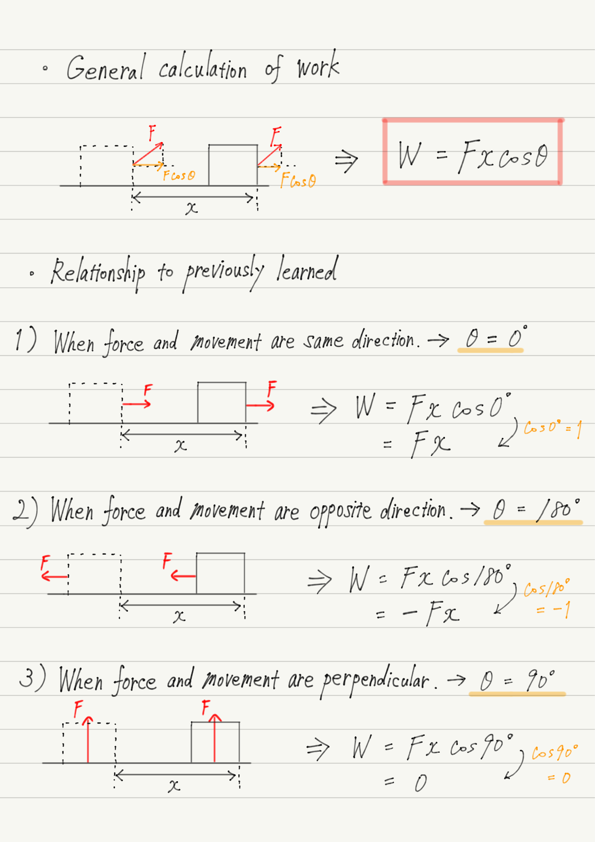 • General calculation of work
F F
Fcosθ Fcosθ ⇒ W = Fxcosθ
x
• Relationship to previously learned
1) When force and movement are same direction. → θ = 0°
F F
⇒ W = Fx cos0°
x = Fx cos0° = 1
2) When force and movement are opposite direction. → θ = 180°
F F
⇒ W = Fx cos180° cos180°
x = - Fx = -1
3) When force and movement are perpendicular. → θ = 90°
F F
⇒ W = Fx cos90° cos90°
x = 0 = 0